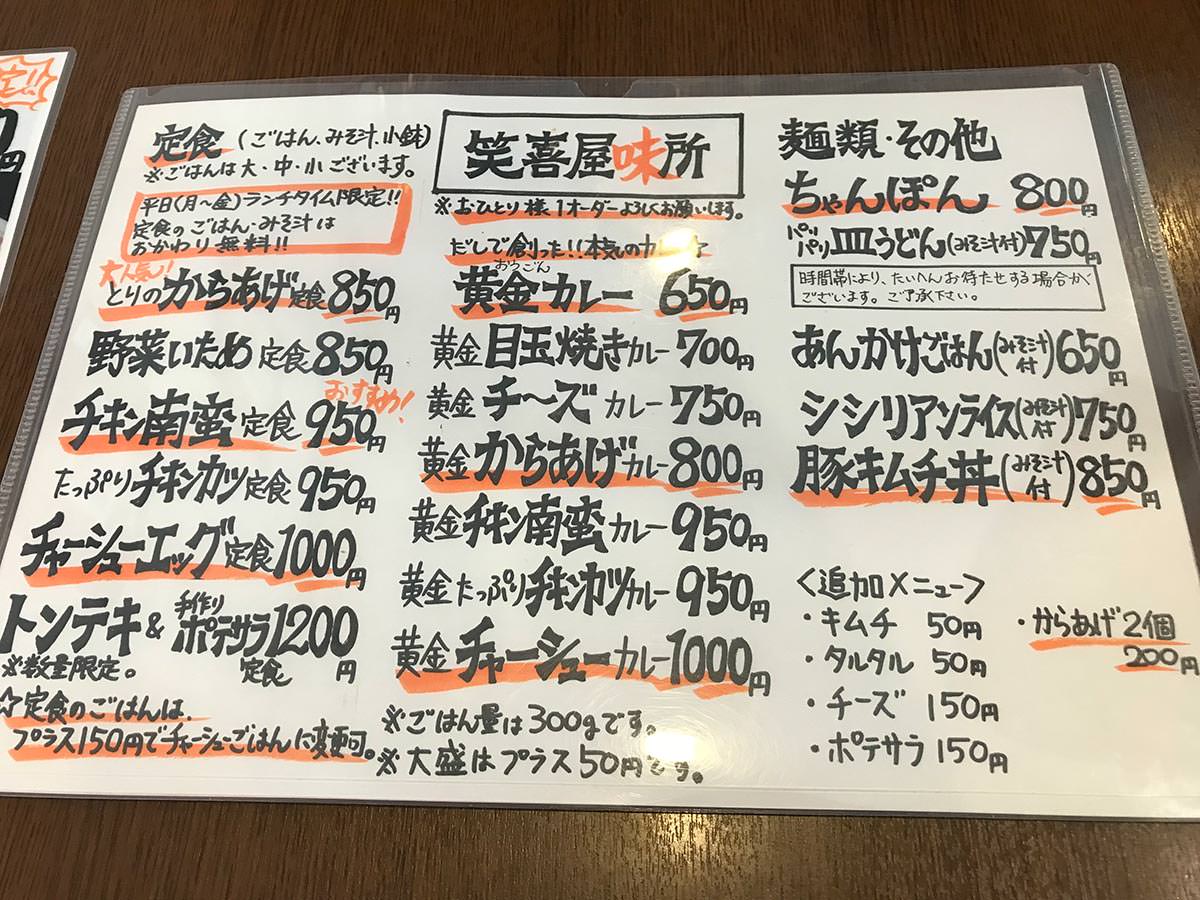 定食(ごはん、みそ汁、小鉢)
※ごはんは大・中・小ございます。
平日(月〜金)ランチタイム限定!!
定食のごはん・みそ汁は
おかわり無料!!
大人気!
とりのからあげ定食850円
野菜いため定食850円
おすすめ!
チキン南蛮定食950円
たっぷりチキンカツ定食950円
チャーシューエッグ定食1000円
トンテキ&手作りポテサラ定食1200円
※数量限定。
☆定食のごはんは、
プラス150円でチャーシューごはんに変更可。
笑喜屋味所
※おひとり様1オーダーよろしくお願いします。
だしで創った!!本気のカレー☆
おうごん
黄金カレー 650円
黄金目玉焼きカレー700円
黄金チ〜ズカレー750円
黄金からあげカレー800円
黄金チキン南蛮カレー950円
黄金たっぷりチキンカツカレー950円
黄金チャーシューカレー1000円
※ごはん量は300gです。
※大盛はプラス50円です。
麺類・その他
ちゃんぽん 800円
パリパリ皿うどん(みそ汁付)750円
時間帯により、たいへんお待たせする場合が
ございます。ご了承下さい。
あんかけごはん(みそ汁付)650円
シシリアンライス(みそ汁付)750円
豚キムチ丼(みそ汁付)850円
<追加メニュー>
・キムチ 50円
・タルタル 50円
・チーズ 150円
・ポテサラ 150円
・からあげ2個
200円
円